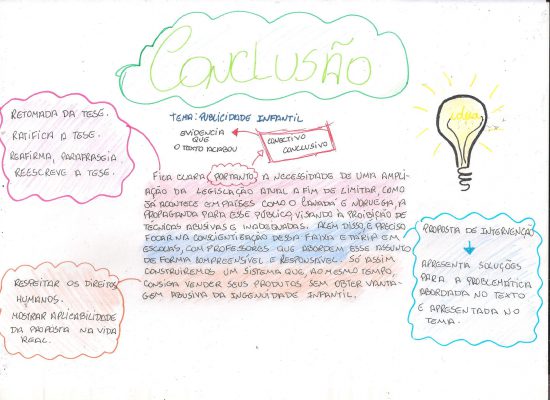 CONCLUSÃO
TEMA: PUBLICIDADE INFANTIL
EVIDENCIA
QUE
O TEXTO ACABOU
CONECTIVO
CONCLUSIVO
RETOMADA DA TESE.
RATIFICA A TESE.
REAFIRMA, PARAFRASEIA
REESCREVE A TESE.
ideia
FICA CLARA, PORTANTO, A NECESSIDADE DE UMA AMPLI-
AÇÃO DA LEGISLAÇÃO ATUAL A FIM DE LIMITAR, COMO
JÁ ACONTECE EM PAÍSES COMO O CANADÁ E NORUEGA, A
PROPAGANDA PARA ESSE PÚBLICO, VISANDO À PROIBIÇÃO DE
TÉCNICAS ABUSIVAS E INADEQUADAS. ALÉM DISSO, É PRECISO
FOCAR NA CONSCIENTIZAÇÃO DESSA FAIXA ETÁRIA EM
ESCOLAS, COM PROFESSORES QUE ABORDEM ESSE ASSUNTO
DE FORMA COMPREENSÍVEL E RESPONSÁVEL. SÓ ASSIM
CONSTRUIREMOS UM SISTEMA QUE, AO MESMO TEMPO,
CONSIGA VENDER SEUS PRODUTOS SEM OBTER VANTA-
GEM ABUSIVA DA INGENUIDADE INFANTIL.
PROPOSTA DE INTERVENÇÃO
APRESENTA SOLUÇÕES
PARA A PROBLEMÁTICA
ABORDADA NO TEXTO
E APRESENTADA NO
TEMA.
RESPEITAR OS DIREITOS
HUMANOS.
MOSTRAR APLICABILIDADE
DA PROPOSTA NA VIDA
REAL.